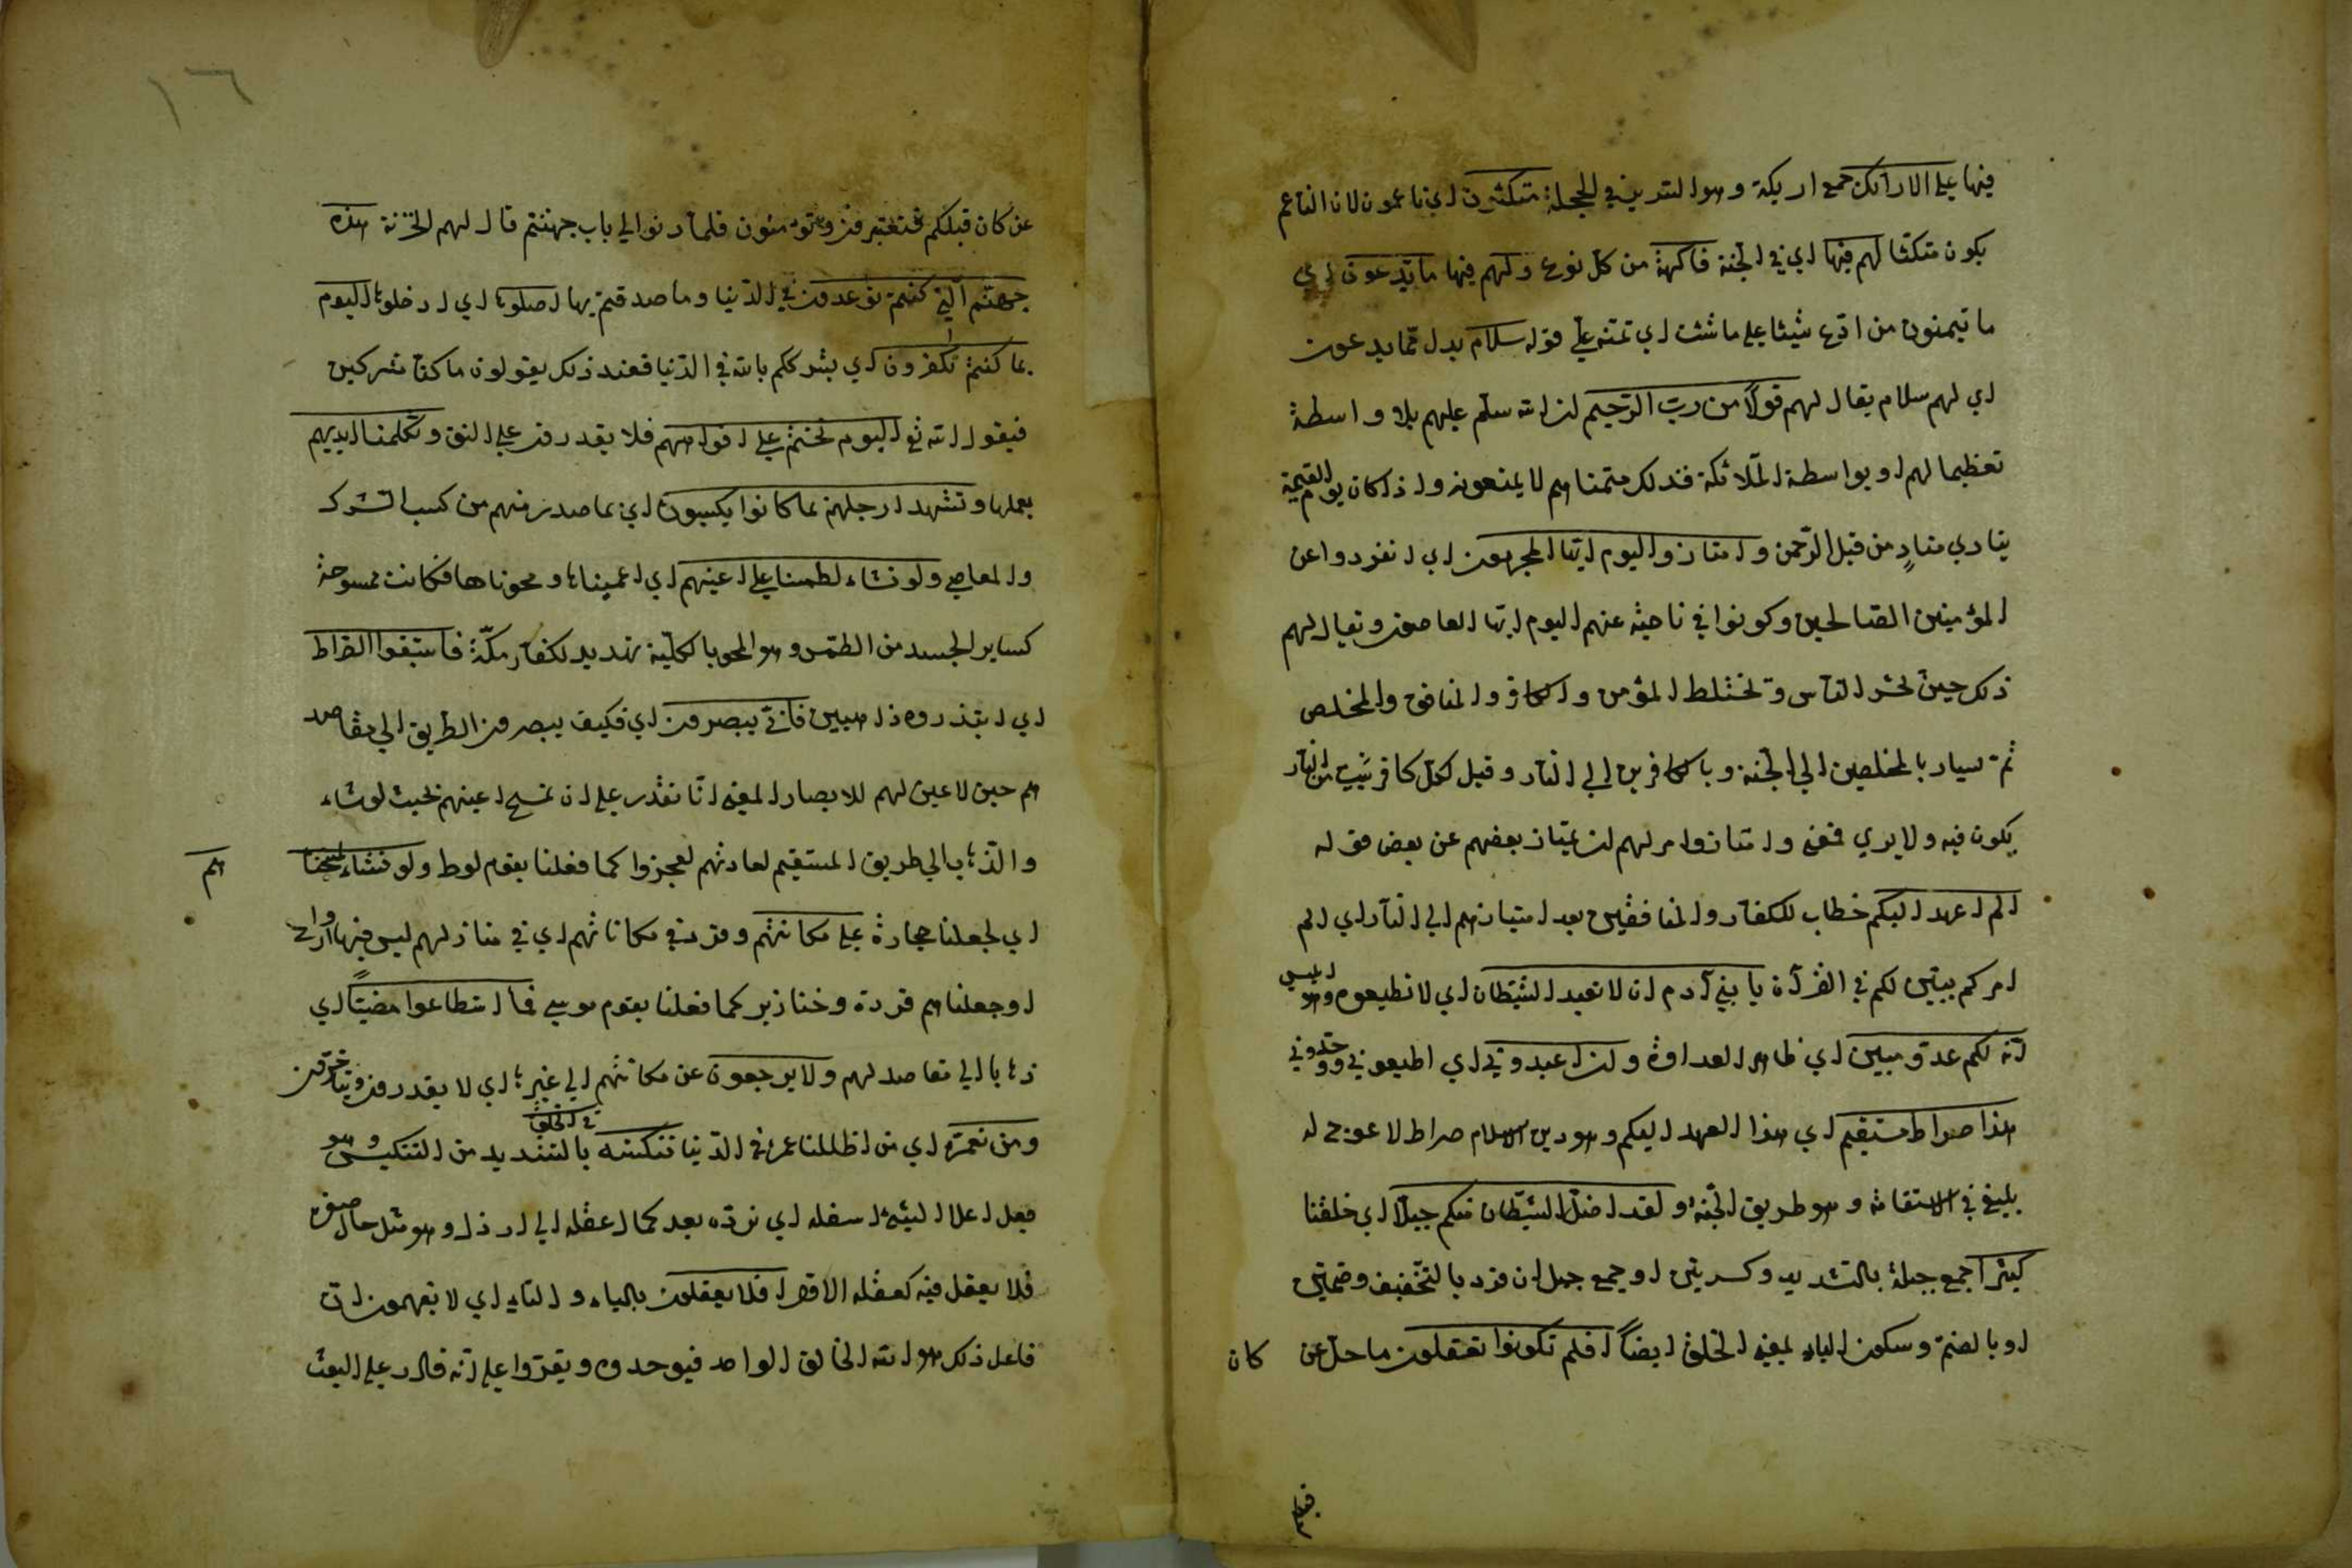 فيها على الارآئك جمع اريكة وهو السرير في الحجلة متكئون اي ناعمون لان الناعم
يكون متكئا لهم فيها اي في الجنة فاكهة من كل نوع ولهم فيها ما يدّعون اي
ما يتمنون من ادّع شيئا علي ما شئت اي تمنه علي قوله سلام بدل مما يدعون
اي لهم سلام يقال لهم قولاً من ربّ الرّحيم لان الله سلّم عليهم بلا واسطة
تعظيما لهم او بواسطة الملآئكة فذلك متمناهم لا يمنعونه واذا كان يوم القيمة
ينادي منادٍ من قبل الرّحمن وامتازوا اليوم ايّها المجرمون اي انفردوا عن
المؤمنين الصالحين وكونوا في ناحية عنهم اليوم ايّها العاصون ويقال لهم
ذلك حين تحشر النّاس وتختلط المؤمن والكافر والمنافق والمخلص
ثمّ يسار بالمخلصين الي الجنّة وبالكافرين الي النّار وقيل لكلّ كافر بيت من النّار
يكون فيه ولا يري فمعني وامتازوا امر لهم ان يمتاز بعضهم عن بعض قوله
الم اعهد اليكم خطاب للكفّار والمنافقين بعد امتيازهم الي النّار اي الم
امركم ببيّن لكم في القرآن يا بني آدم ان لا تعبد الشّيطان اي لا تطيعوه وهو ابليس
انّه لكم عدوّ مبين اي ظاهر العداوة وان اعبدوني اي اطيعوني ووحّدوني
هذا صراط مستقيم اي هذا العهد اليكم وهو دين الاسلام صراط لا عوج له
بليغ في الاستقامة وهو طريق الجنّة ولقد اضلّ الشّيطان منكم جبلّا اي خلقنا
كثيراً جمع جبلة بالتشديد وكسرتين او جمع جبل ان قرء بالتخفيف وضمّتين
او بالضمّ وسكون الباء بمعني الخلق ايضاً افلم تكونوا تعقلون ما حلّ عن كان
عن كان قبلكم فتعتبرون وتؤمنون فلمّا دنوا الي باب جهنّم قال لهم الخزنة هذه
جهنّم الّتي كنتم توعدون في الدّنيا وما صدقتم بها اصلوها اي ادخلوها اليوم
بما كنتم تكفرون اي بشرككم بالله في الدّنيا فعند ذلك يقولون ما كنّا مشركين
فيقول الله تع اليوم نختم علي افواههم فلا يقدرون علي النّطق وتكلّمنا ايديهم
بعملها وتشهد ارجلهم بما كانوا يكسبون اي بما صدر منهم من كسب الشرك
والمعاصي ولو نشاء لطمسنا علي اعينهم اي اعميناها ومحوناها فكانت ممسوحة
كساير الجسد من الطّمس وهو المحو بالكلّية تهديد لكفّار مكّة فاستبقوا الصّراط
اي ابتدروه ذاهبين فانّي يبصرون اي فكيف يبصرون الطّريق الي مقاصد
هم حين لا عين لهم للابصار المعني انّا نقدر علي ان نمسح اعينهم بحيث لو شاء
والذّهاب الي طريق المستقيم لعادتهم لعجزوا كما فعلنا بقوم لوط ولو نشاء لمسخنا هم
اي لجعلنا حجارة علي مكانتهم وقرئ مكاناتهم اي في منازلهم ليس فيها ارواح
او جعلناهم قردة وخنازير كما فعلنا بقوم موسي فما استطاعوا مضيّاً اي
ذهابا الي مقاصد لهم ولا يرجعون عن مكانتهم الي غيرها اي لا يقدرون ويتأخّرون
ومن نعمّره اي من اطلنا عمره في الدّنيا ننكّسه في الخلق بالتشديد من التنكيس وهو
جعل اعلا الشّئ اسفله اي نردّه بعد كمال عقله الي ارذل وهو مثل حال صغره
فلا يعقل فيه كعقله الاوّل افلا يعقلون بالياء والتّاء اي لا يفهمون انّ
فاعل ذلك هو الله الخالق الواحد فيوحدوه ويقرّوا علي انّه قادر علي البعث
١٦